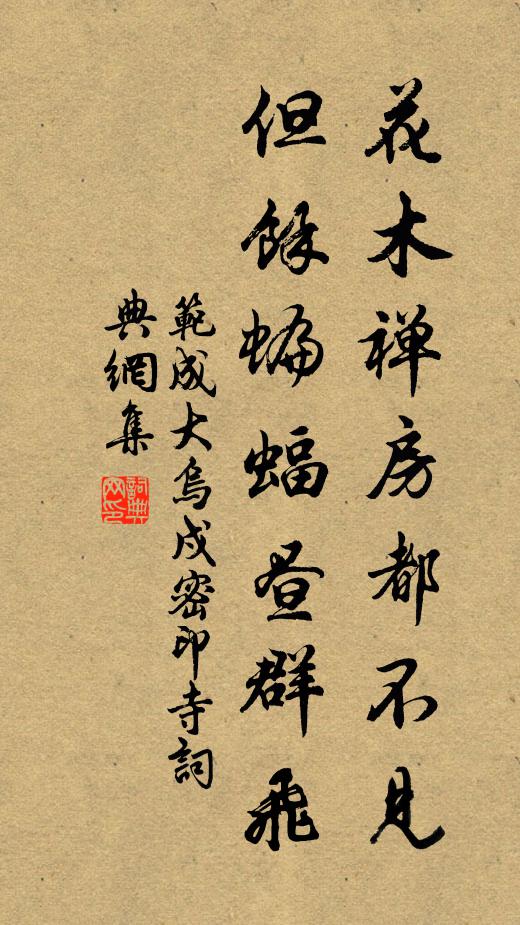 花木禅房都不見
但餘蝙蝠昼群飛
範成大烏戍密印寺詞
典網集
詞典网印